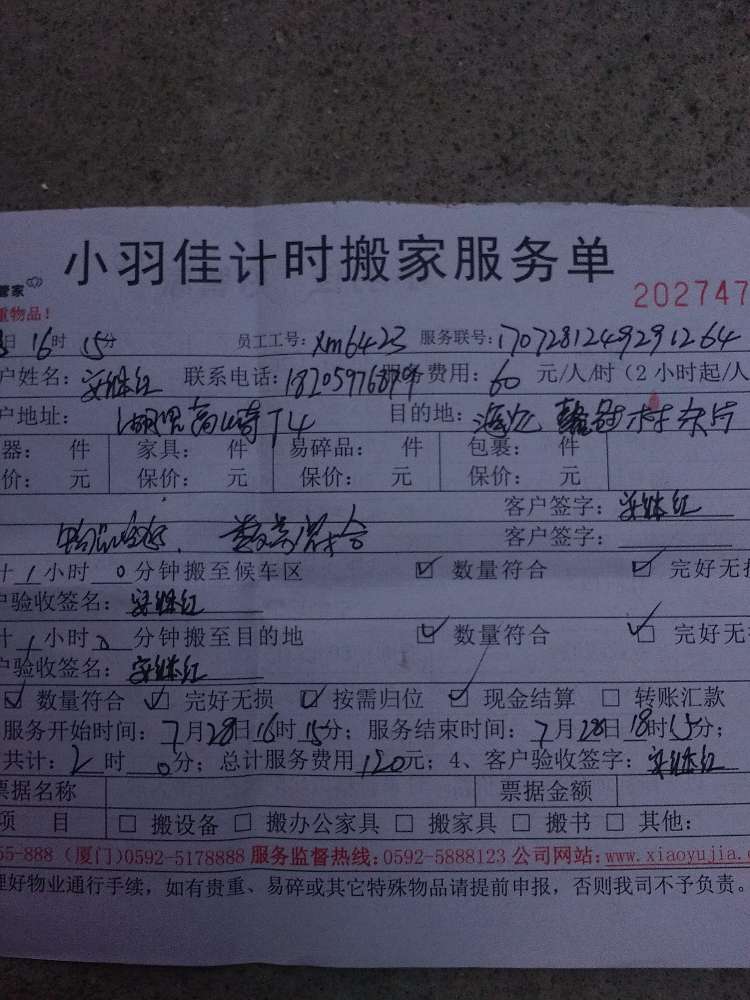 小羽佳计时搬家服务单
管家
重物品！
202747
日16时15分 员工工号：xm6423 服务联号：1707281249291264
户姓名：安继红 联系电话：1820597689 务费用：60元/人/时（2小时起/人
户地址：湖里高崎T4 目的地：海沧 村
器： 件 家具： 件 易碎品： 件 包裹： 件
价： 元 保价： 元 保价： 元 保价： 元
客户签字：安继红
客户签字：
物品完好、数量符合
计1小时0分钟搬至候车区 ☑数量符合 ☑完好无损
户验收签名：安继红
计1小时0分钟搬至目的地 ☑数量符合 ☑完好无损
户验收签名：安继红
☑数量符合 ☑完好无损 ☑按需归位 ☑现金结算 □转账汇款
服务开始时间：7月28日16时15分；服务结束时间：7月28日18时15分；
共计：2时0分；总计服务费用120元；4、客户验收签字：安继红
票据名称 票据金额
项 目 □搬设备 □搬办公家具 □搬家具 □搬书 □其他：
55-888（厦门）0592-5178888 服务监督热线：0592-5888123 公司网站：www.xiaoyujia.c
理好物业通行手续，如有贵重、易碎或其它特殊物品请提前申报，否则我司不予负责。